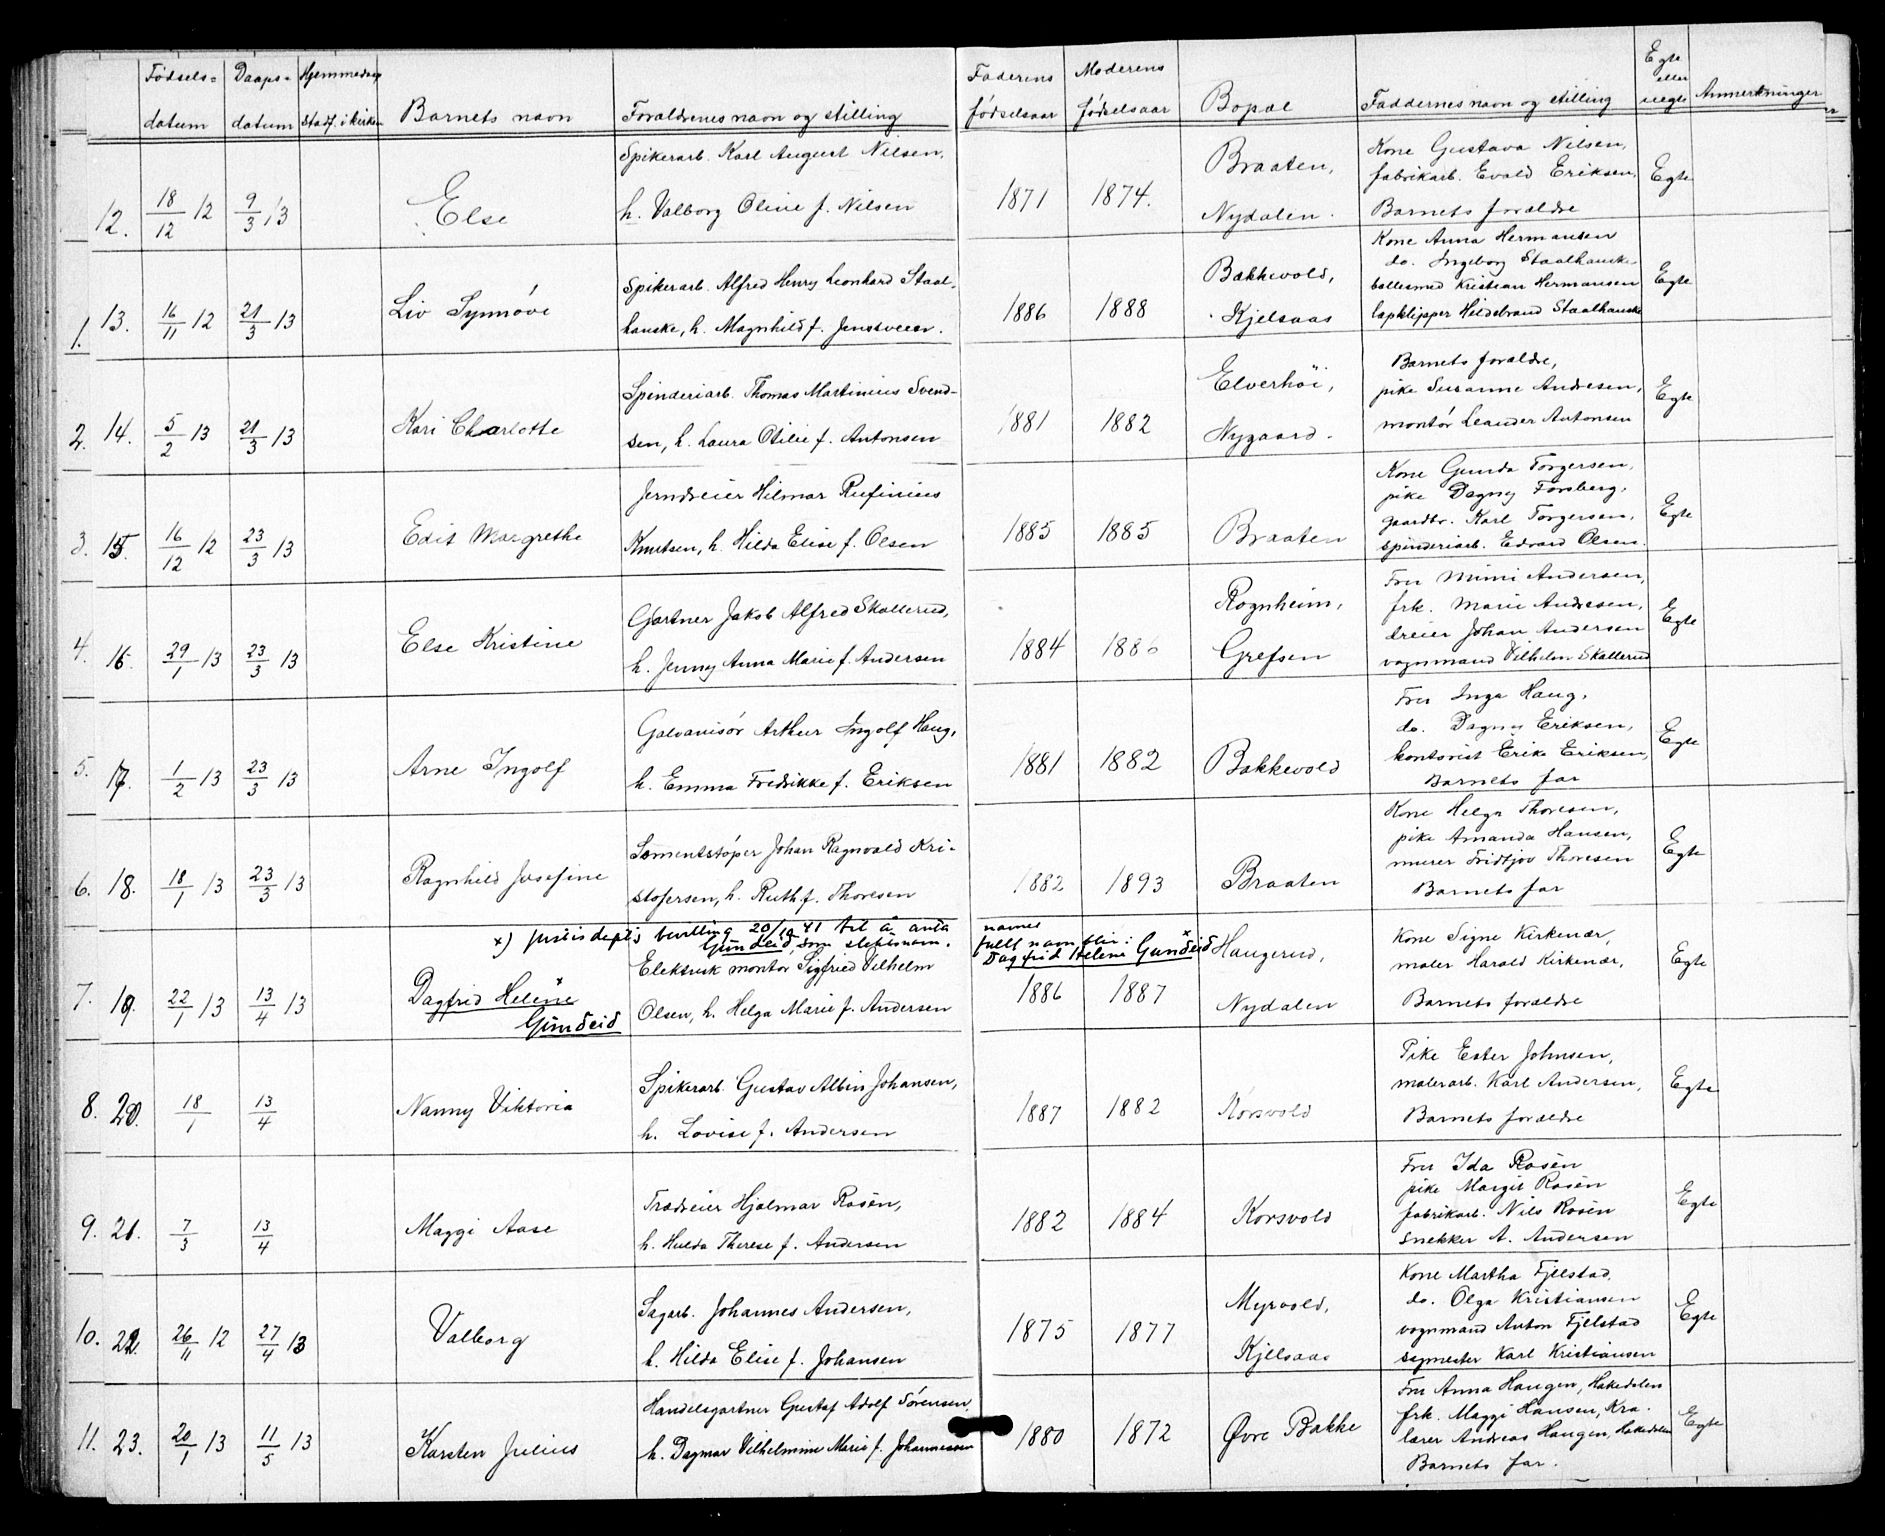 Fødsels= Daaps= Hjemmedøp Faderens Moderens Egte
datum datum Stadf. i kirken Barnets navn Forældrenes navn og stilling fødselsaar fødselsaar Bopæl Faddernes navn og stilling eller uegte Anmerkninger
12. 18/12 12 9/3 13 Else
Spikerarb. Karl August Nilsen,
h. Valborg Oline f. Nilsen
1871 1874.
Braaten,
Nydalen.
Kone Gustava Nilsen,
fabrikarb. Evald Eriksen,
Barnets forældre
Egte
1. 13. 16/11 12 21/3 13 Liv Synnøve
Spikerarb. Alfred Henry Leonhard Staal-
hanske, h. Magnhild f. Jensveen.
1886 1888
Bakkevold,
Kjelsaas
Kone Anna Hermansen
do. Ingeborg Staalhanske
Kristian Hermansen
Hildebrand Staalhanske
Egte
2. 14. 5/2 13 21/3 13 Kari Charlotte
Spinderiarb. Thomas Martinius Svend-
sen, h. Laura Otilie f. Antonsen
1881 1882
Elverhöi,
Nygaard.
Barnets forældre,
pike Susanne Andresen,
montör Leander Antonsen
Egte
3. 15. 16/12 12 23/3 13 Edit Margrethe
Jerndreier Hilmar Rufinius
Knutsen, h. Hilda Elise f. Olsen
1885 1885
Braaten
Kone Gunda Torgersen,
pike Dagny Forsberg,
gaardbr. Karl Torgersen,
spinderiarb. Edvard Olsen.
Egte
4. 16. 29/1 13 23/3 13 Else Kristine
Gartner Jakob Alfred Skallerud,
h. Jenny Anna Marie f. Andersen
1884 1886
Rognheim,
Grefsen
Fru Mimi Andersen,
frk. Marie Andresen,
dreier Johan Andersen
vognmand Vilhelm Skallerud
Egte
5. 17. 1/2 13 23/3 13 Arne Ingolf
Galvanisör Arthur Ingolf Haug,
h. Emma Fredrikke f. Eriksen
1881 1882
Bakkevold
Fru Inga Haug,
do. Dagny Eriksen,
kontorist Erik Eriksen,
Barnets far
Egte
6. 18. 18/1 13 23/3 13 Ragnhild Josefine
Sementstöper Johan Ragnvald Kri-
stofersen, h. Ruth f. Thoresen
1882 1893
Braaten
Kone Helga Thoresen,
pike Amanda Hansen,
murer Fridtjov Thoresen
Barnets far
Egte
x) Justisdepts bevilling 20/10 41 til å anta navnet
Gundeid, som slektsnavn. fullt navn blir:
Dagfrid Helene Gundeid
7. 19. 22/1 13 13/4 13 Dagfrid Helene
Gundeid
Elektrisk montör Sigfried Vilhelm
Olsen, h. Helga Marie f. Andersen
1886 1887
Haugerud,
Nydalen
Kone Signe Kirkenær,
maler Harald Kirkenær,
Barnets forældre
Egte
8. 20. 18/1 13/4 Nanny Viktoria
Spikerarb. Gustav Albin Johansen,
h. Lovise f. Andersen
1887 1882
Korsvold
Pike Ester Johnsen,
malerarb. Karl Andersen,
Barnets forældre
Egte
9. 21. 7/3 13/4 Maggi Aase
Trædreier Hjalmar Rosèn,
h. Hulda Therese f. Andersen
1882 1884
Korsvold
Fru Ida Rosèn
pike Margit Rosèn
fabrikarb. Nils Rosèn
snekker A. Andersen
Egte
10. 22. 26/11 12 27/4 13 Valborg
Sagarb. Johannes Andersen,
h. Hilda Elise f. Johansen
1875 1877
Myrvold,
Kjelsaas
Kone Martha Fjelstad,
do. Olga Kristiansen
vognmand Anton Fjelstad
sagmester Karl Kristiansen
Egte
11. 23. 20/1 13 11/5 13 Karsten Julius
Handelsgartner Gustaf Adolf Sörensen,
h. Dagmar Vilhelmine Marie f. Johannessen
1880 1872
Øvre Bakke
Fru Anna Haugen, Hakedalen
frk. Maggi Hansen, Kra.
lærer Andreas Haugen, Hakedalen
Barnets far.
Egte